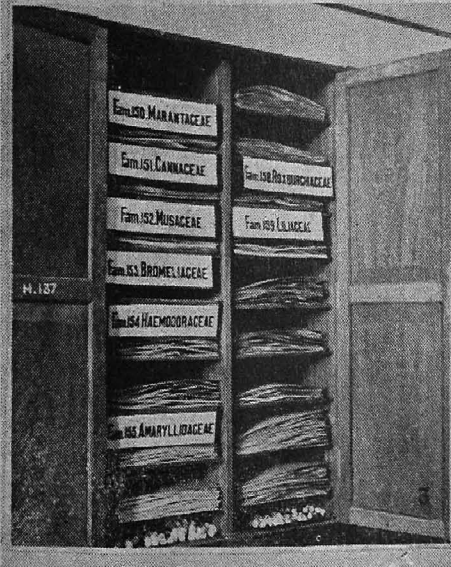 Fam.150.MARANTACEAE
Fam.151.CANNACEAE
Fam.152.MUSACEAE
Fam.153.BROMELIACEAE
Fam.154.HAEMODORACEAE
Fam.155.AMARYLLIDACEAE
Fam.158.ROXBURGHIACEAE
Fam.159.LILIACEAE
H.137
3